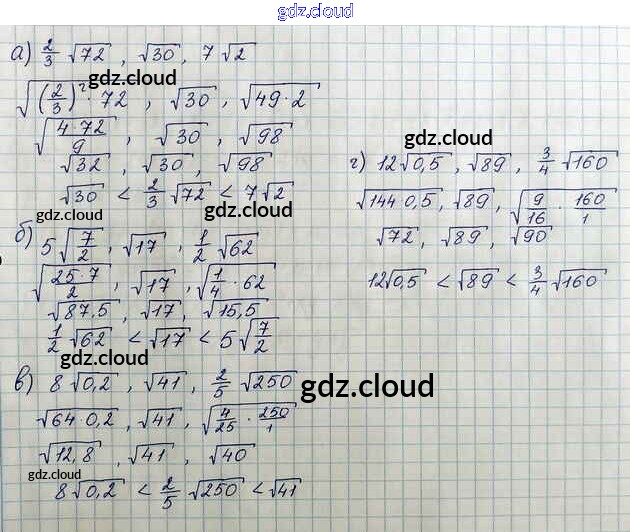 gdz.cloud
а) 2/3 √72, √30, 7√2
gdz.cloud
√((2/3)² · 72), √30, √(49·2)
√(4·72/9), √30, √98
√32, √30, √98
gdz.cloud
√30 < 2/3 √72 < 7√2
gdz.cloud
gdz.cloud
б) 5√(7/2), √17, 1/2 √62
√(25·7/2), √17, √(1/4 · 62)
√87,5, √17, √15,5
1/2 √62 < √17 < 5√(7/2)
gdz.cloud
в) 8√0,2, √41, 2/5 √250
gdz.cloud
√(64·0,2), √41, √(4/25 · 250/1)
√12,8, √41, √40
gdz.cloud
8√0,2 < 2/5 √250 < √41
gdz.cloud
г) 12√0,5, √89, 3/4 √160
√(144 0,5), √89, √(9/16 · 160/1)
√72, √89, √90
12√0,5 < √89 < 3/4 √160